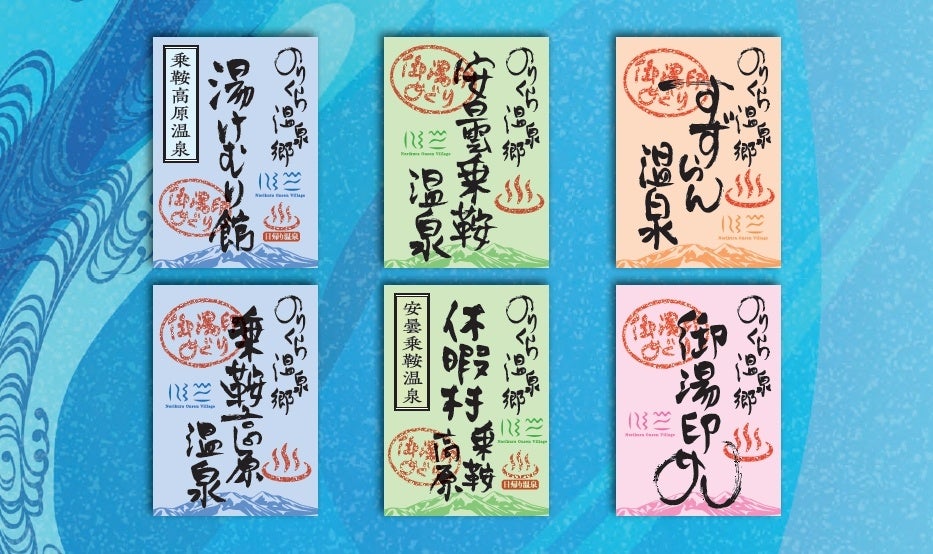 乗鞍高原温泉
のりくら温泉郷
湯けむり館
御湯印めぐり
Norikura Onsen Village
日帰り温泉
のりくら温泉郷
安曇乗鞍
温泉
御湯印めぐり
Norikura Onsen Village
のりくら温泉郷
すずらん
温泉
御湯印めぐり
Norikura Onsen Village
のりくら温泉郷
乗鞍高原
温泉
御湯印めぐり
Norikura Onsen Village
安曇乗鞍温泉
のりくら温泉郷
休暇村
乗鞍
高原
御湯印めぐり
Norikura Onsen Village
日帰り温泉
のりくら温泉郷
御湯印め
御湯印めぐり
Norikura Onsen Village